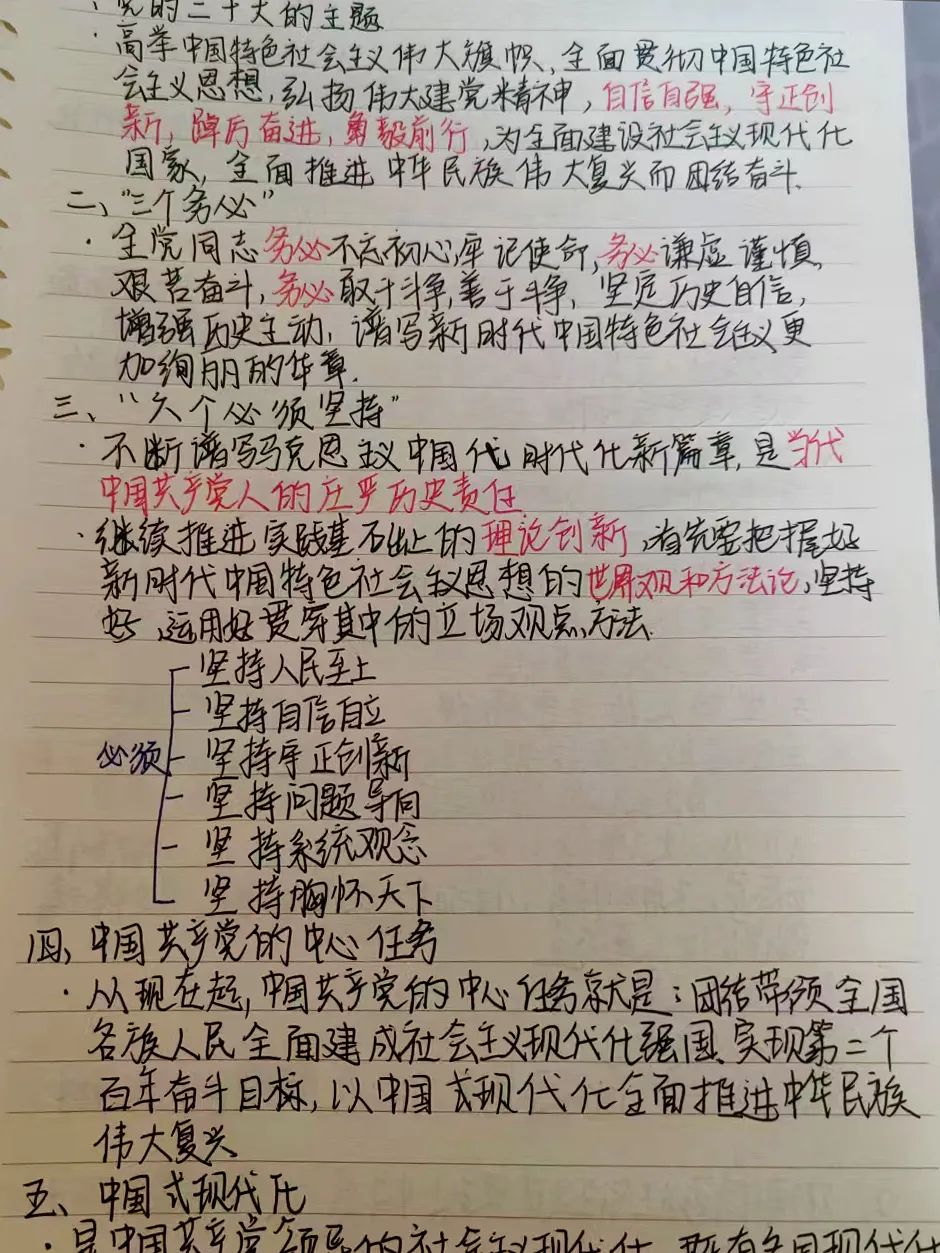 · 党的二十大的主题
· 高举中国特色社会主义伟大旗帜、全面贯彻中国特色社
会主义思想,弘扬伟大建党精神,自信自强,守正创
新,踔厉奋进,勇毅前行,为全面建设社会主义现代化
国家,全面推进中华民族伟大复兴而团结奋斗.
二、“三个务必”
· 全党同志务必不忘初心,牢记使命,务必谦虚谨慎,
艰苦奋斗,务必敢于斗争,善于斗争,坚定历史自信,
增强历史主动,谱写新时代中国特色社会主义更
加绚丽的华章.
三、“六个必须坚持”
· 不断谱写马克思主义中国代时代化新篇章,是当代
中国共产党人的庄严历史责任
· 继续推进实践基础上的理论创新,首先要把握好
新时代中国特色社会主义思想的世界观和方法论,坚持
好、运用好贯穿其中的立场观点方法.
坚持人民至上
坚持自信自立
必须 坚持守正创新
坚持问题导向
坚持系统观念
坚持胸怀天下
四、中国共产党的中心任务
· 从现在起,中国共产党的中心任务就是:团结带领全国
各族人民全面建成社会主义现代化强国、实现第二个
百年奋斗目标,以中国式现代化全面推进中华民族
伟大复兴
五、中国式现代化
· 是中国共产党领导的社会主义现代化,既有各国现代化